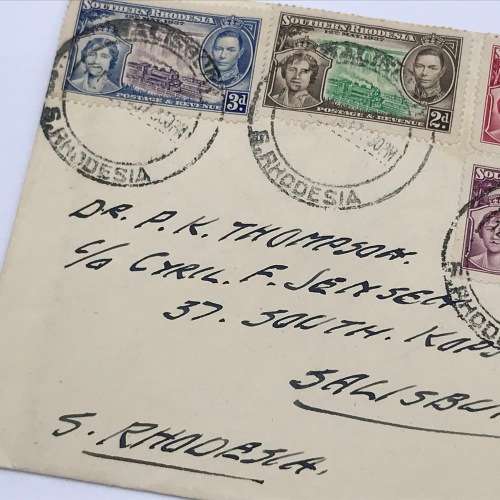 SOUTHERN RHODESIA
POSTAGE & REVENUE 3d
SOUTHERN RHODESIA
POSTAGE & REVENUE 2d
S. RHODESIA
S. RHODESIA
SOUTH
DR. P. K. THOMPSON.
C/O CYRIL. F. JENSEN
37. SOUTH. KOP
SALISBU
S. RHODESIA.